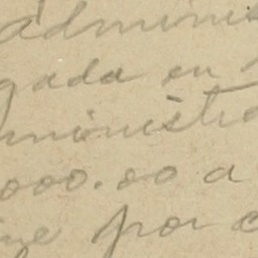 adminis
gada en
ministra
000.00 a
por